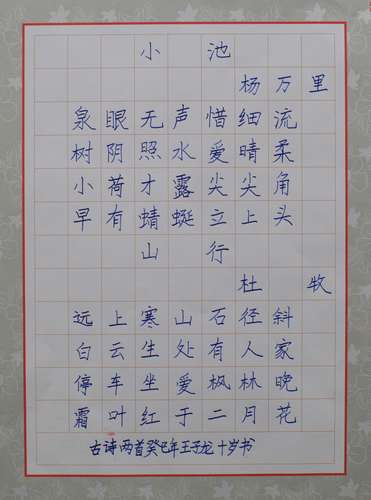 小池
杨万里
泉眼无声惜细流
树阴照水爱晴柔
小荷才露尖尖角
早有蜻蜓立上头
山行
杜牧
远上寒山石径斜
白云生处有人家
停车坐爱枫林晚
霜叶红于二月花
古诗两首癸巳年王子龙十岁书